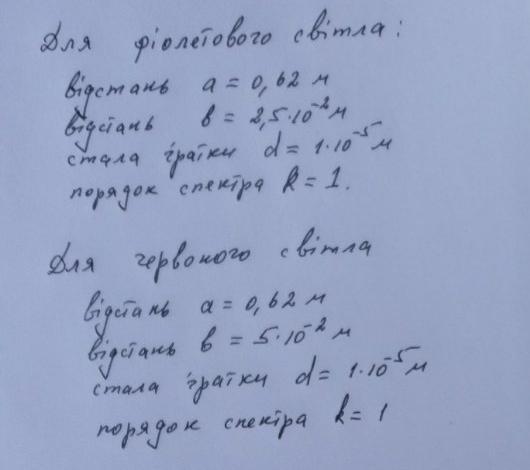 Для фіолетового світла:
відстань a = 0,62 м
відстань в = 2,5·10⁻² м
стала ґратки d = 1·10⁻⁵ м
порядок спектра k = 1.
Для червоного світла
відстань a = 0,62 м
відстань в = 5·10⁻² м
стала ґратки d = 1·10⁻⁵ м
порядок спектра k = 1